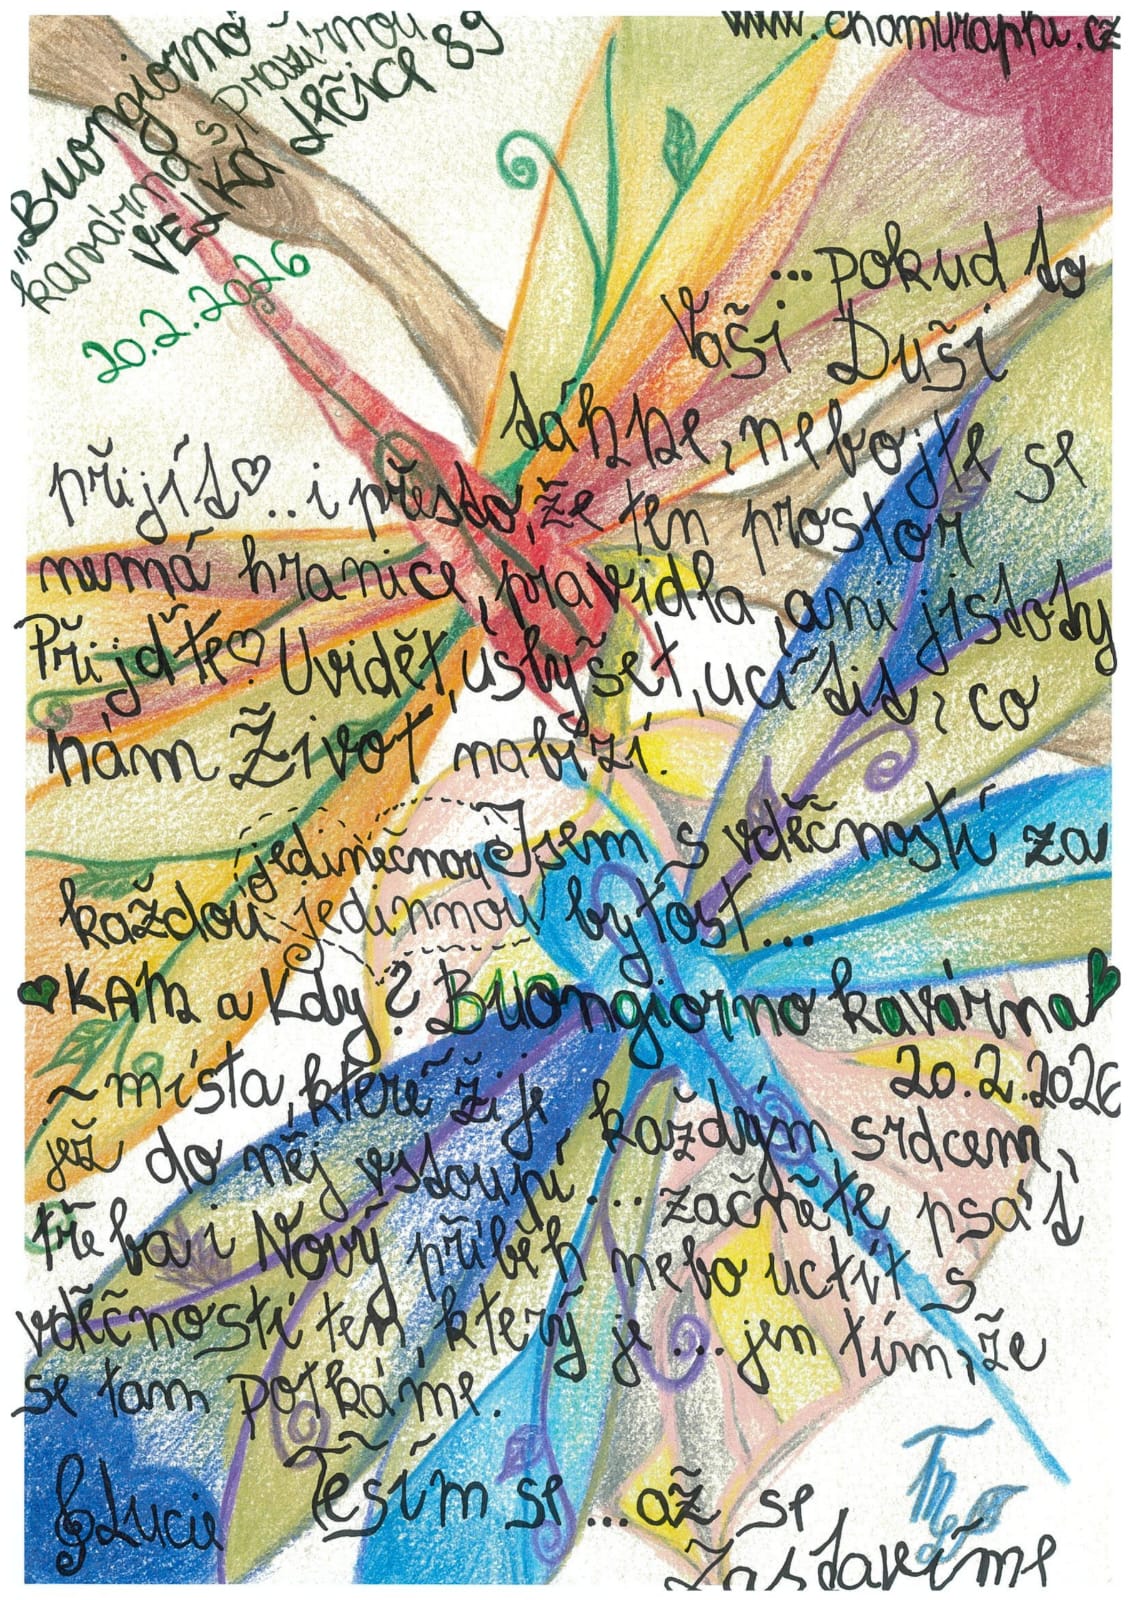 "Buongiorno"
kavárna s pražírnou
VELKÁ Lečice 89
20.2.2026
www.chamuraphi.cz
...pokud to
Vaši Duši
táhne, nebojte se
přijít♡.. i přesto, že ten prostor
nemá hranice, pravidla, ani jistoty
Přijďte♡ Uvidět, uslyšet, ucítit, co
nám Život nabízí.
jedinečnou Jsem s vděčností za
každou jedinnou bytost...
♥KAM a Kdy? Buongiorno kavárna♥
20.2.2026
~místa, které žije každým srdcem,
jež do něj vstoupí... začněte psát
třeba i Nový příběh nebo uctít s
vděčností ten, který je...jen tím, že
se tam potkáme.
Lucie Těším se...až se
zastavíme